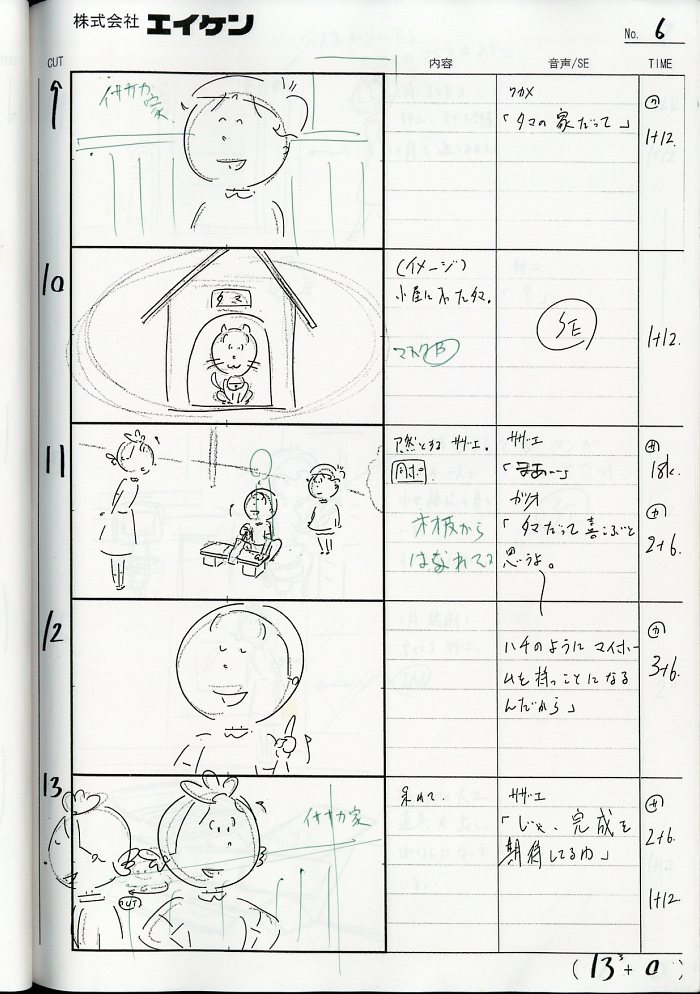 株式会社 エイケン
No. 6
CUT
内容
音声/SE
TIME
イササカ家
ワカメ
「タマの家だって」
ワ
1+12.
10
タマ
(イメージ)
小屋に入ったタマ。
マスクB
SE
1+12.
11
サザエ。
サザエ
「まあ…」
カツオ
「タマだって喜ぶと
思うよ。
木板から
はなれてる
サ
18k.
カ
2+6.
12
ハチのように マイホー
ムを持つことになる
んだから」
カ
3+6.
13
イササカ家
OUT
サザエ
「じゃ、完成を
期待してるわ」
サ
2+6.
1+12
(13+0)